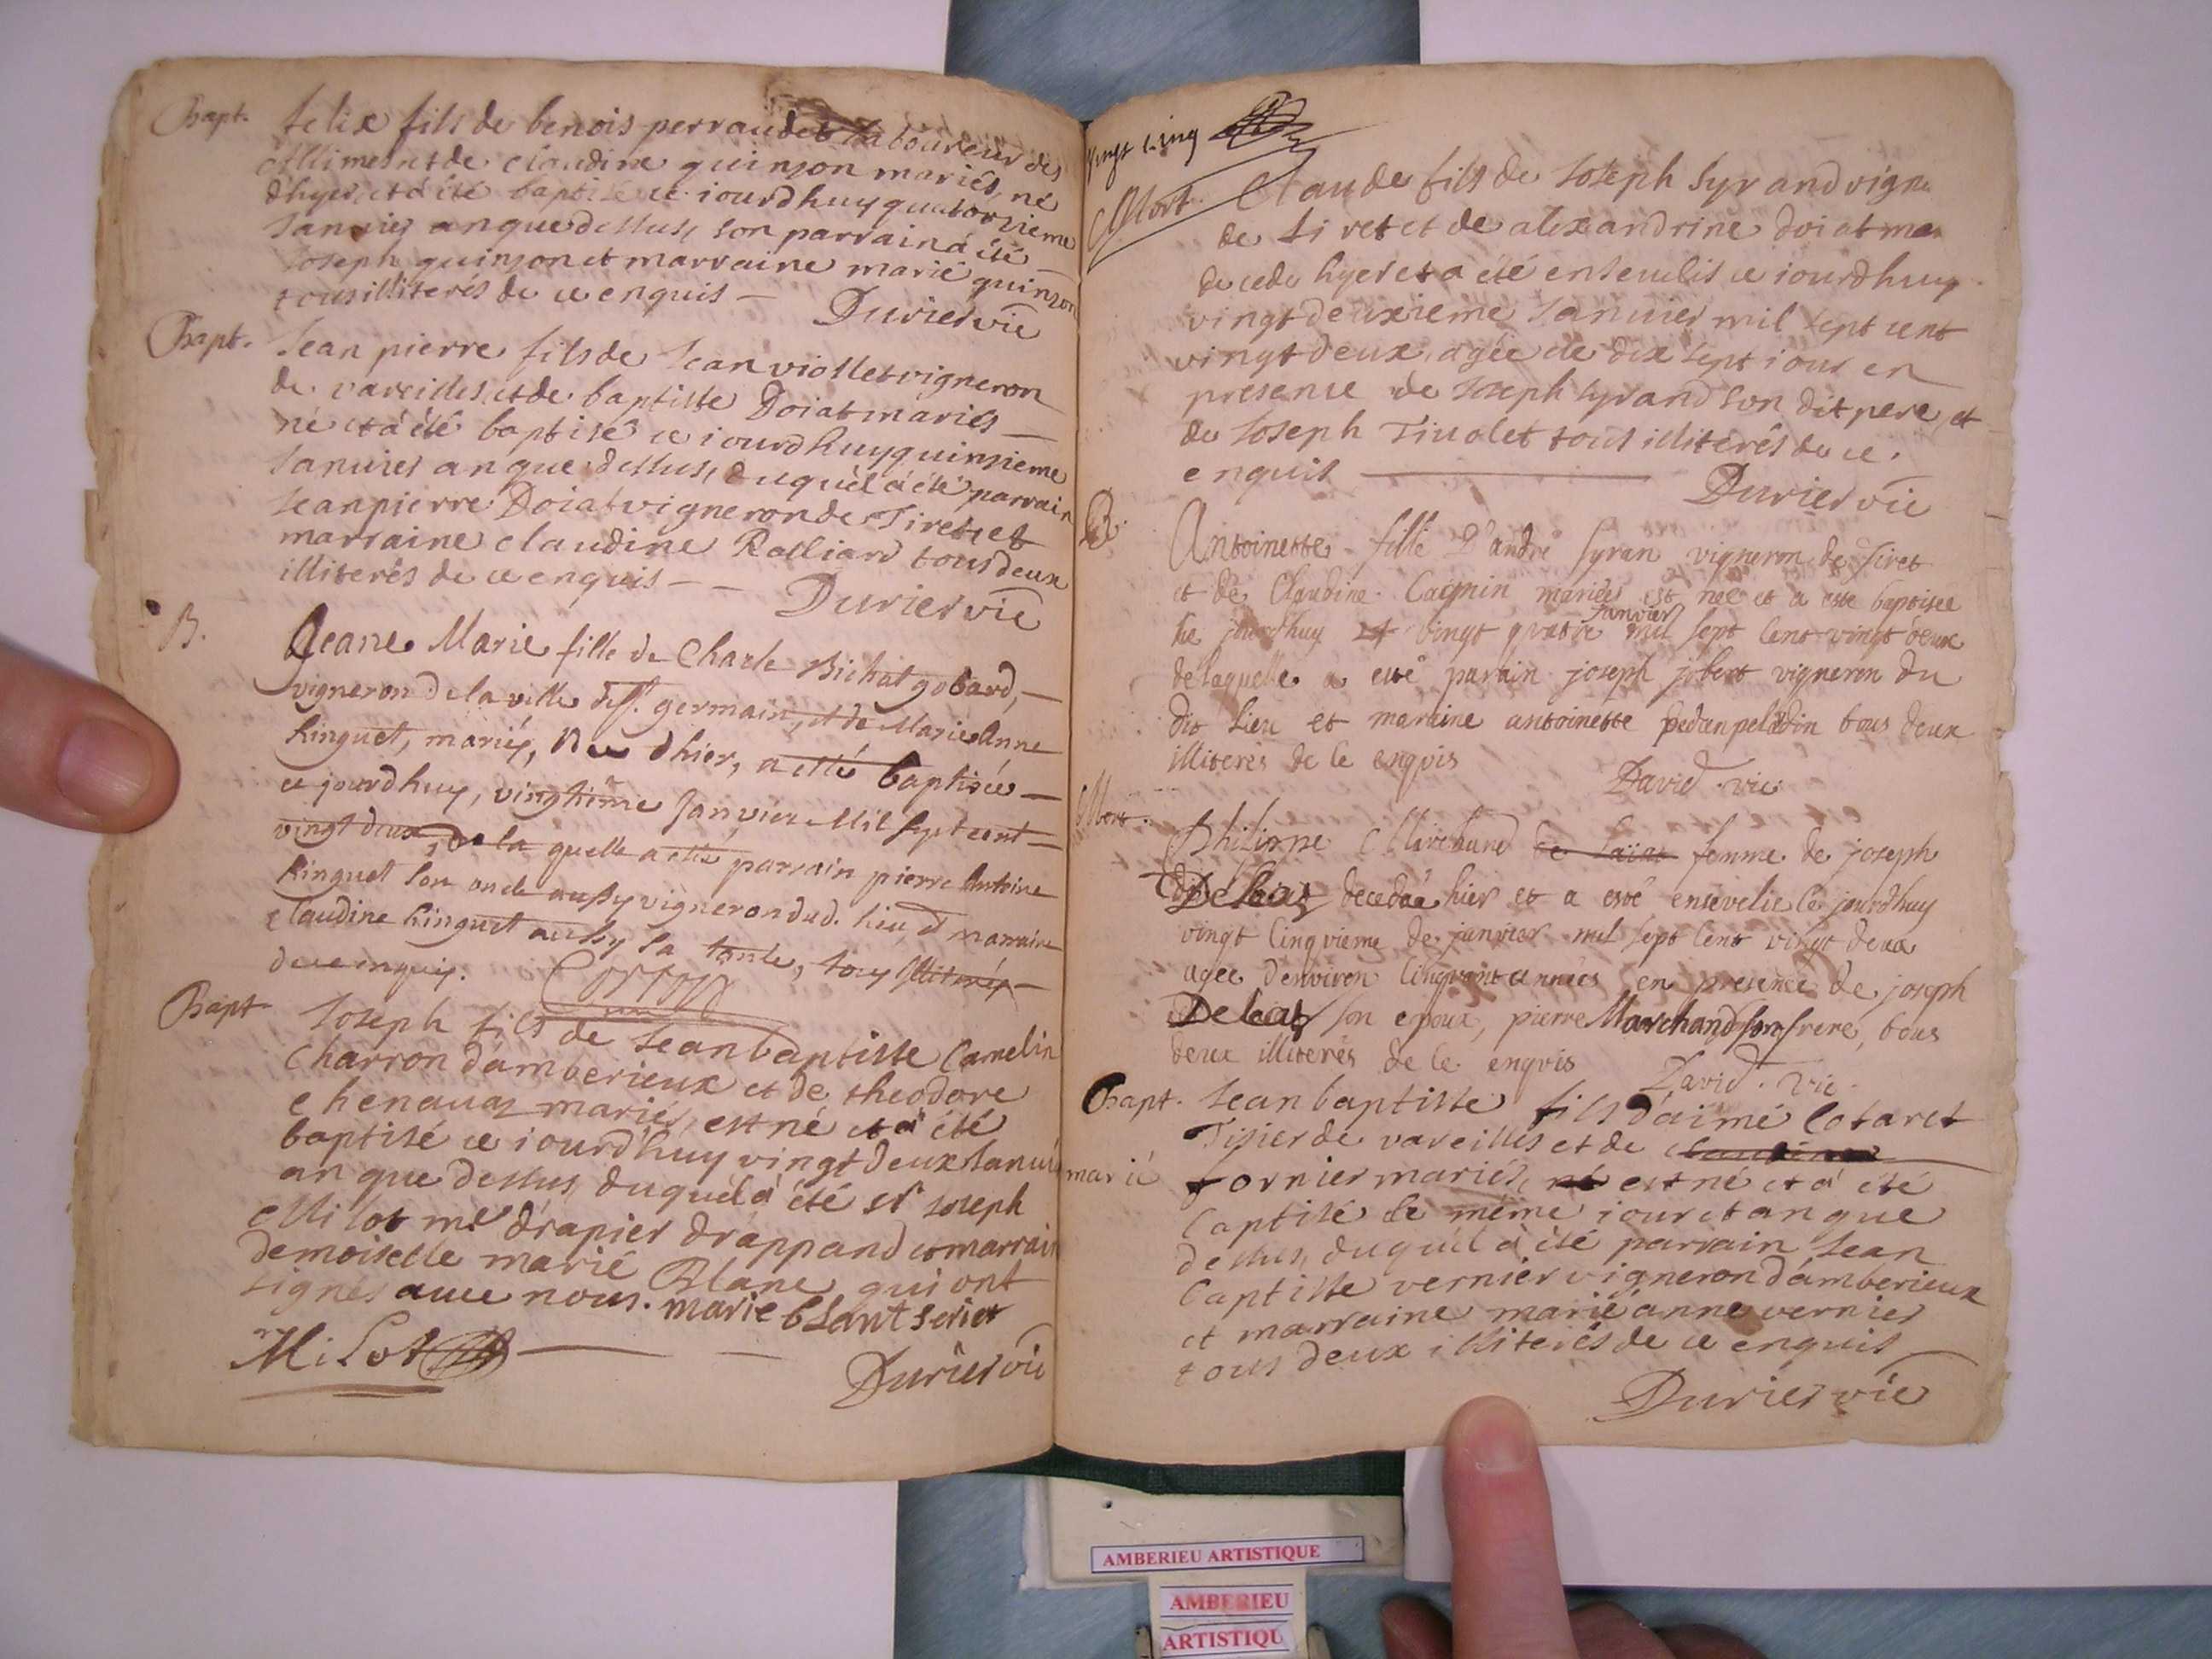 Bapt. felix fils de benois perraudet laboureur des
Allimes et de claudine quinson mariés, né
d'hyer, et a été baptisé ce iourdhuy quatorzieme
Januier an que dessus, son parrain a été
Joseph quinson et marraine marie quinson
tous illiterés de ce enquis — Durier vic
Bapt. Jean pierre fils de Jean viollet vigneron
de vareilles et de baptiste Doiat mariés
né et a été baptisé ce iourdhuy quinzieme
Januier an que dessus, duquel a été parrain
Jean pierre Doiat vigneron de Tiret, et
marraine claudine Rolliard tous deux
illiterés de ce enquis — — Durier vic
B. Jeane Marie fille de Charle Bichat gobard,
vigneron de la ville de St. germain, et de Marie Anne
hinguet, mariés, Née d'hier, a esté baptisée
ce jourdhuy, vingtiéme Janvier Mil sept cent
vingt deux, de la quelle a esté parrain pierre Antoine
hinguet son oncle aussy vigneron dud. lieu, et marraine
claudine hinguet aussy sa tante, tous illiterés
de ce enquis.
Bapt Joseph fils de Jean baptiste Camelin
Charron d'amberieux et de theodore
chenauaz mariés, est né et a été
baptisé ce iourd'huy vingt deux Januier
an que dessus, duquel a été Sr Joseph
Milot me drapier drappand et marraine
demoiselle marie Blanc qui ont
signés auec nous. marie bLant seriet
Milot — — Durier vic
vingt cinq
Mort. Claude fils de Joseph Syrand vigne
de tiret et de alexandrine doiat mar
decedé hyer et a été enseuelis ce iourdhuy
vingt deuxieme Januier mil sept cent
vingt deux, agée de dix sept iour en
presence de Joseph Syrand son dit pere, et
de Joseph Tiuolet tous illiterés de ce
enquis — Durier vic
B. Antoinette fille D'andré Syran vigneron de Tiret
et de Claudine Cagnin mariés est née et a esté baptisée
ce jourdhuy 24 vingt quatre Janvier mil sept cent vingt deux
de laquelle a esté parain joseph jobert vigneron du
dit lieu et maraine antoinette pedanpeladin tous deux
illiterés de ce enquis David vic
Mort. Philippe Marchand de saint femme de joseph
Deleaz decedée hier et a esté ensevelie ce jourdhuy
vingt cinqvieme de janvier mil sept cent vingt deux
agée d'environ cinqvante années en presence de joseph
Deleaz son epoux, pierre Marchand son frere, tous
deux illiterés de ce enqvis David. vic.
Bapt. Jean baptiste fils d'aimé Cotaret
Tisier de vareilles et de claudine
marie fornier mariés, né est né et a été
baptisé le même iour et an que
dessus, duquel a été parrain Jean
baptiste vernier vigneron d'amberieux
et marraine marie anne vernier
tous deux illiterés de ce enquis
Durier vic
AMBERIEU ARTISTIQUE
AMBERIEU
ARTISTIQU